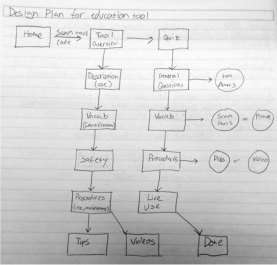 Design Plan for education tool
Home
Scan tool
Code
Tool
Overview
Quiz
Description
(use)
General
Questions
Vocab
(Identification)
Vocab
Scan
Parts
or
Place
Safety
Procedures
Pics
or
Video
Procedures
Live
Use
Tips
Videos
Done